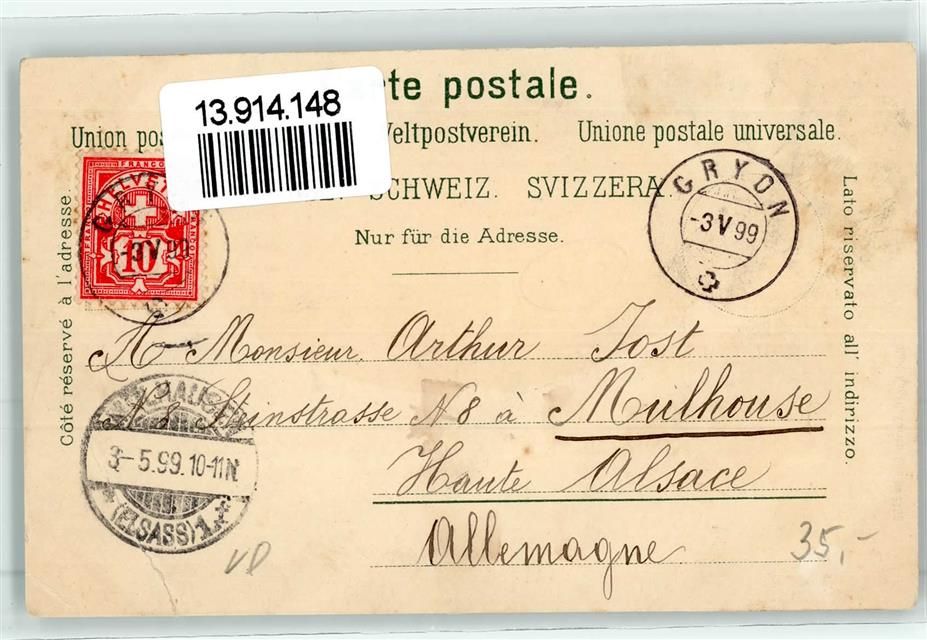 13.914.148
postale.
Union
Weltpostverein. Unione postale universale.
SCHWEIZ. SVIZZERA.
Nur für die Adresse.
Côté réservé à l'adresse.
Lato riservato all' indirizzo.
FRANCO
HELVETIA
10
-3 V 99
GRYON
-3 V 99
A Monsieur Arthur Jost
Steinstrasse N 8 à Mulhouse
Haute Alsace
Allemagne
3-5.99.10-11N
(ELSASS) 1.
35,-